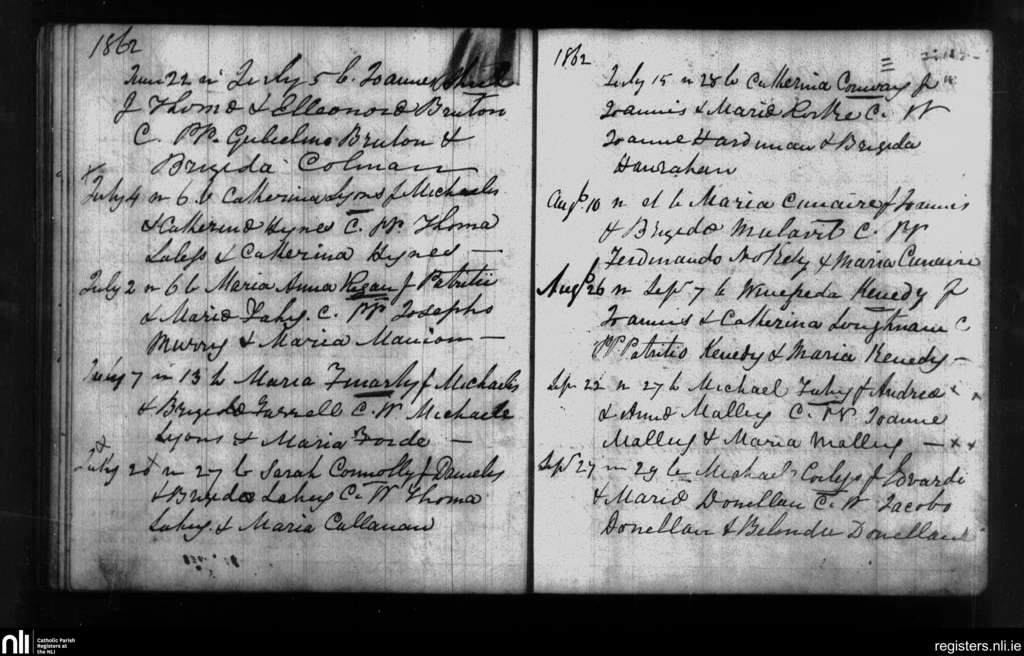 1862
June 22 n July 5 b. Joannes
f Thomæ & Elleonoræ Bruton
C. PP. Gulielmo Bruton &
Brigida Colman
July 4 n 6 b Catherina Lyons f Michaelis
& Catherinæ Hynes C. PP Thoma
Laless & Catherina Hynes —
July 2 n 6 b Maria Anna Regan f Patritii
& Mariæ Fahy. C. PP Josepho
Murry & Maria Manion —
July 7 n 13 b Maria f Michaelis
& Brigidæ Farrell C. PP Michaele
Lyons & Maria Forde —
July 20 n 27 b Sarah Connolly f Danielis
& Brigidæ Lahey C. PP Thoma
Lahey. & Maria Callanan
1862
July 15 n 28 b Catherina Conway f
Joannis & Mariæ Rorke C. PP
Joanne Hardiman & Brigida
Hanrahan
Aug 10 n et b Maria Cunaire f Joannis
& Brigidæ C. PP
Ferdinando & Maria Cunaire
Aug 26 n Sep. 7 b Winefreda Kenedy f
Joannis & Catherina Loughnane C
PP Patritio Kenedy & Maria Kenedy —
Sep 22 n 27 b Michael Fahy f Andreæ
& Annæ Malley C. PP Joanne
Malley & Maria Malley — x x
Sep. 27 n 29 b Michael f Edvardi
& Mariæ Donellan C. PP Jacobo
Donellan & Belinda Donellan
nli
Catholic Parish
Registers at
the NLI
registers.nli.ie